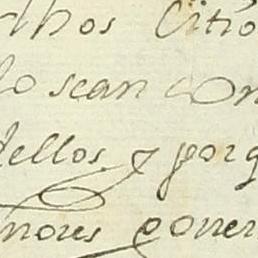 hos Citio
lo sean con
dellos y porq
nores poner